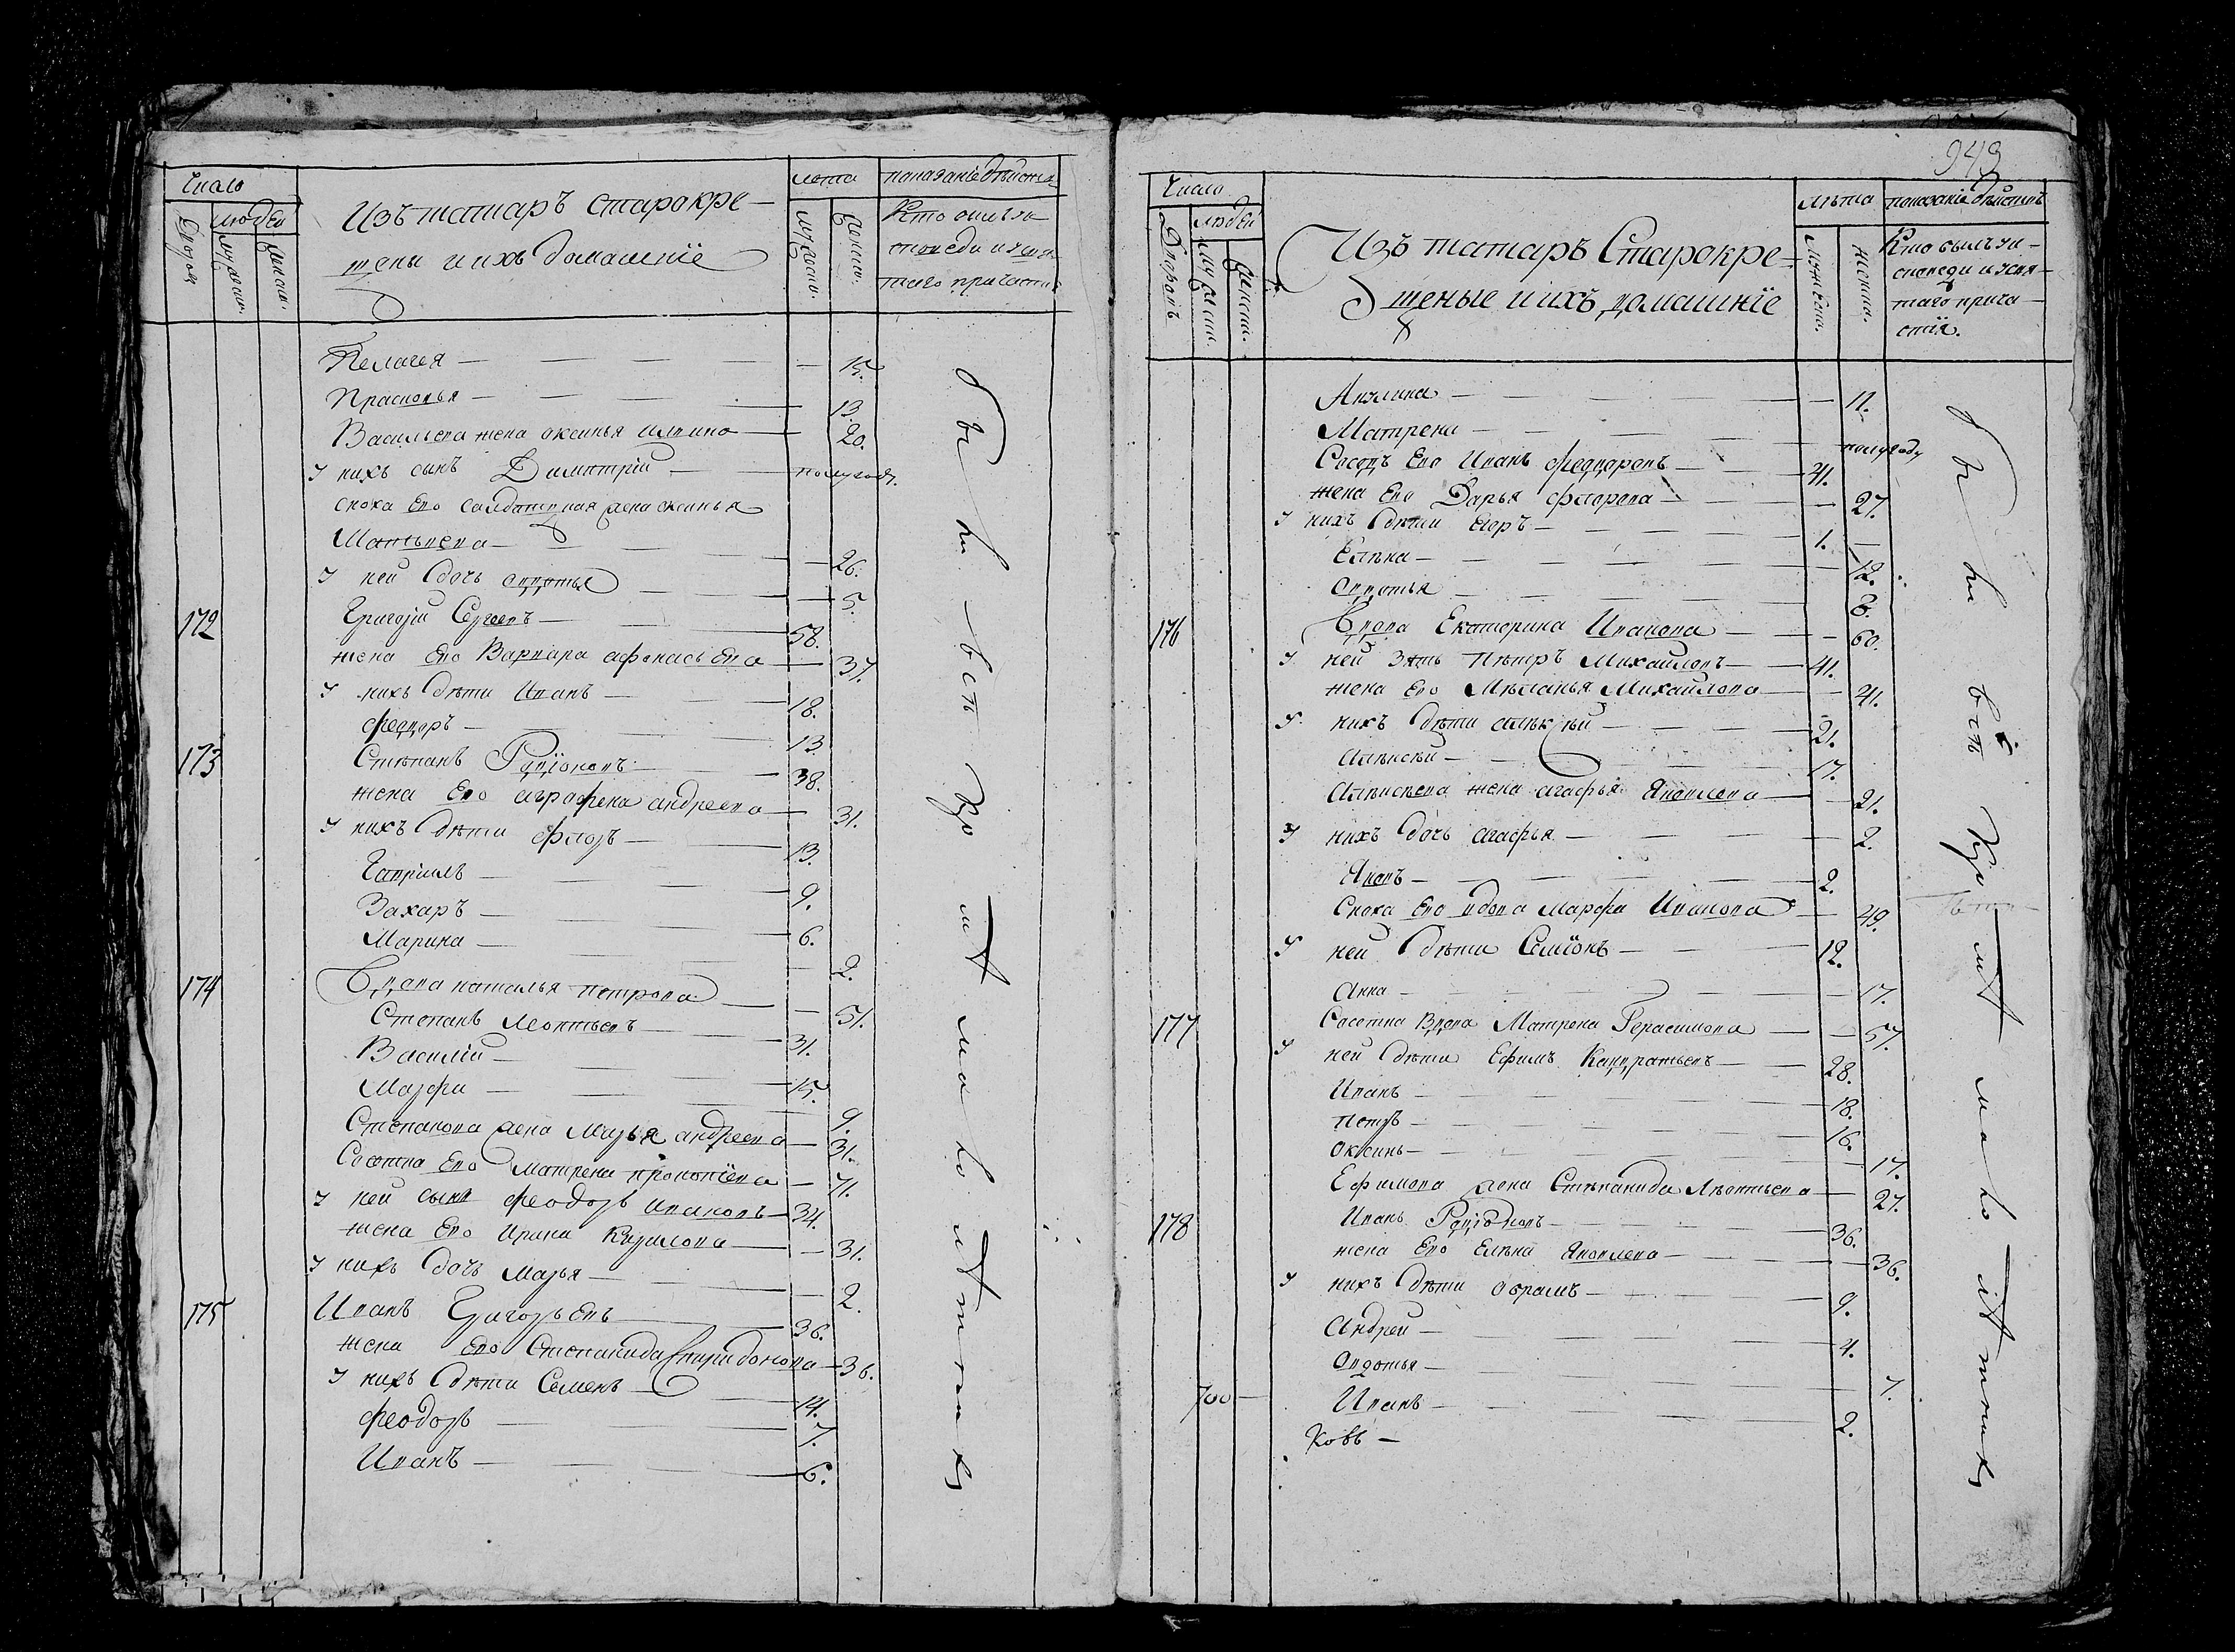 Число
людей
Дворовъ
мужеск.
женск.
Изъ татаръ старокре-
щены и ихъ домашніе
лета
мужеск.
женск.
показаніе действъ
Кто былъ у и-
споведи и у свя-
таго причастия
Пелагея 15.
Прасковья 13.
Васильева жена оксинья 20.
У нихъ сынъ Димитрїй полугоду.
сноха Ево салдатцкая жена оксинья
Матвеева 26.
У ней дочь овдотья 5.
172 Григорїй Сергеевъ 58.
жена Ево Варвара афонасьЕва 37.
У нихъ дѣти Иванъ 18.
Феодоръ 13.
173 Стѣпанъ Родїоновъ 38.
жена Ево аграфена андреева 31.
У нихъ дѣти Флоръ 13.
Гаврилъ 9.
Захаръ 6.
Марина 2.
174 Вдова наталья петрова 51.
Степанъ Леонтьевъ 31.
Василїй 15.
Марфа 9.
Степанова жена Марья андреева 31.
Соседка Ево Матрена прокопїева 71.
У ней сынъ Феодоръ Ивановъ 34.
жена Ево Ирина Кирилова 31.
У нихъ дочь Марья 2.
175 Иванъ ГригорьЕвъ 36.
жена Ево Степанида Спиридонова 36.
У нихъ дѣти Семенъ 14.
Феодоръ 7.
Иванъ 6.
943
Число
людей
Дворовъ
мужеск.
женск.
Изъ татаръ Старокре-
щеные и ихъ домашнїе
лѣта
мужеска.
женска.
показанїе действъ
Кто былъ у и-
споведи и у свя-
таго прича-
стїя.
Акулина 11.
Матрена полугоду
Соседъ Ево Иванъ Феодоровъ 41.
жена Ево Дарья Флорова 27.
У нихъ дѣти Егоръ 1.
Елѣна 12.
Овдотья 8.
176 Вдова Екатерина Иванова 60.
У ней Зять Пѣтръ Михаиловъ 41.
жена Ево Мѣланья Михайлова 41.
У нихъ дѣти 21.
Алѣксѣй 17.
Алѣксѣева жена агафья Яковлева 21.
У нихъ дочь агафья 2.
Яковъ 2.
Сноха Ево вдова Марфа Иванова 49.
У ней дѣти Семїонъ 12.
Анна 17.
177 Соседка Вдова Матрена Герасимова 57.
У ней дѣти Ефимъ Кандратьевъ 28.
Иванъ 18.
Петръ 16.
Оксинь 17.
Ефимова жена Стѣпанида Лѣонтьева 27.
178 Иванъ Родїоновъ 36.
жена Ево Елѣна Яковлева 36.
У нихъ дѣти обрамъ 9.
Андрей 4.
Овдотья 7.
700
Иванъ 2.